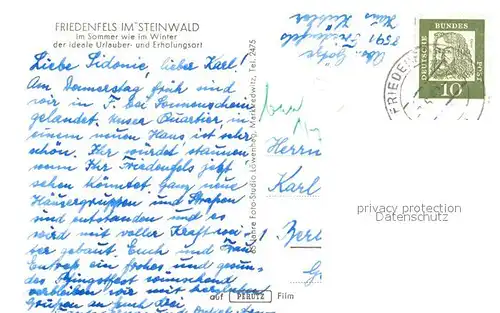 FRIEDENFELS IM STEINWALD
Im Sommer wie im Winter
der ideale Urlauber- und Erholungsort
Liebe Sidonie, lieber Karl!
Am Donnerstag früh sind
wir in F. bei Sonnenschein
gelandet. Unser Quartier in
einem neuen Haus ist sehr
schön. Ihr würdet staunen
wenn Ihr Friedenfels jetzt
sehen könntet. Ganz neue
Häusergruppen und Straßen
sind entstanden und es
wird mit voller Kraft wei-
ter gebaut. Euch und Frau
ein frohes und gesun-
des Pfingstfest wünschend
verbleiben wir mit herzlichen
Grüßen an Euch drei
65 Jahre Foto-Studio Löwenhag, Marktredwitz, Tel. 2475
auf PERUTZ Film
Abs. Götze
8591 Friedenfels
Haus
Herrn
Karl
Berl
DEUTSCHE
BUNDES
POST
10
FRIEDEN
privacy protection
Datenschutz